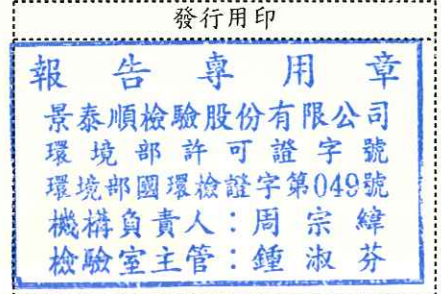 發行用印
報告專用章
景泰順檢驗股份有限公司
環境部許可證字號
環境部國環檢證字第049號
機構負責人：周宗緯
檢驗室主管：鍾淑芬